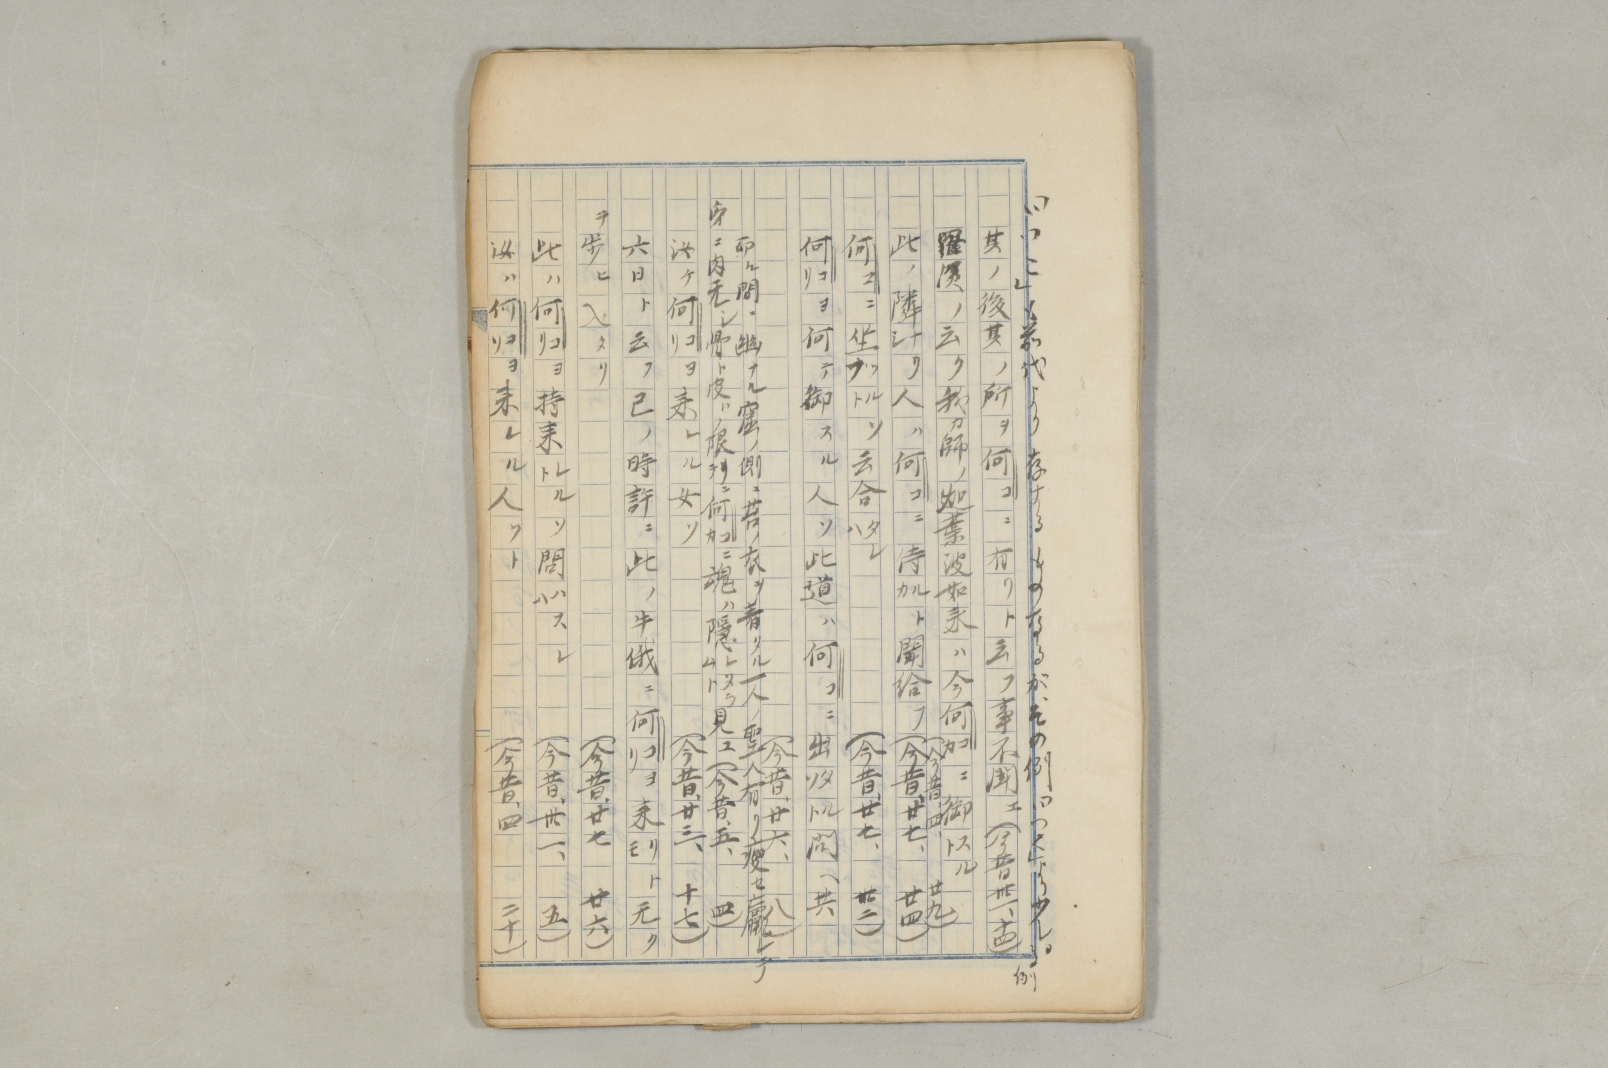 「いづこ」も前代より存するものなるが、その例「いづく」より少し。
例
其ノ後其ノ所ヲ何コニ有リト云フ事不聞エ(今昔、卅一、十四)
羅漢ノ云ク我ガ師ノ迦葉波如来ハ今何カコニ御トスル(今昔、四、廿九)
此ノ隣ナリシ人ハ何コニ侍カルト聞給フ(今昔、廿七、廿四)
何コニ坐ヅトルソ云合ハタレ(今昔、廿七、廿二)
何コリヨ何テ御スル人ソ此道ハ何コニ出ツタルト問ヘ共
(今昔、廿六、八)
而ル間、幽ナル窟ノ側ニ苔ノ衣ヲ着タル一人ノ聖人有リ、痩セ羸レテ
身ニ肉无シ骨ト皮ハ限リニ何カコニ魂ハ隠レタラムト見エ(今昔、五、四)
汝ヶ何コリヨ来レル女ソ(今昔、廿三、十七)
六日ト云フ巳ノ時許ニ此ノ牛俄ニ何コリヨ来リトモ无ク
ヲ歩ヒ入タリ(今昔、廿七、廿六)
此ハ何コリヨ持来レルトソ問ハスレ(今昔、卅一、五)
汝ハ何コリヨ来レル人ソト(今昔、四、二十)